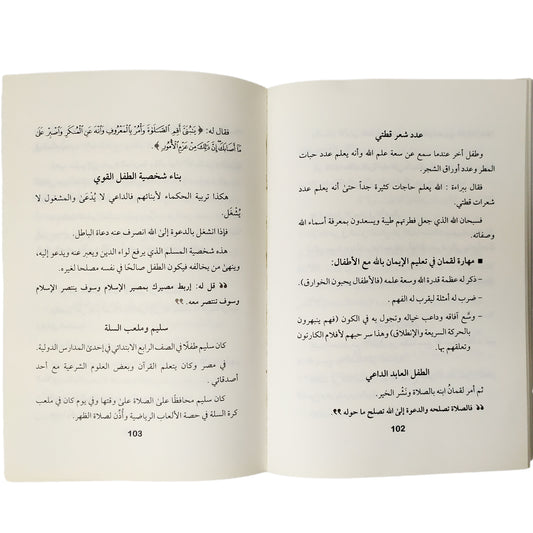 عدد شعر قطتي
وطفل آخر عندما سمع عن سعة علم الله وأنه يعلم عدد حبات
المطر وعدد أوراق الشجر.
فقال ببراءة : الله يعلم حاجات كثيرة جداً حتىٰ أنه يعلم عدد
شعرات قطتي.
فسبحان الله الذي جعل فطرتهم طيبة ويسعدون بمعرفة أسماء الله
وصفاته.
■ مهارة لقمان في تعليم الإيمان بالله مع الأطفال:
– ذكر له عظمة قدرة الله وسعة علمه (فالأطفال يحبون الخوارق).
– ضرب له أمثلة ليقرب له الفهم .
– وسَّع آفاقه وداعب خياله وتجول به في الكون (فهم ينبهرون
بالحركة السريعة والإنطلاق) وهذا سر حبهم لأفلام الكارتون
وتعلقهم بها.
الطفل العابد الداعي
ثم أمر لقمانُ ابنه بالصلاة ونَشْر الخير.
❝ فالصلاة تصلحه والدعوة إلىٰ الله تصلح ما حوله ❞.
102
فقال له: ﴿ يَبُنَيَّ أَقِمِ ٱلصَّلَوٰةَ وَأْمُرْ بِٱلْمَعْرُوفِ وَٱنْهَ عَنِ ٱلْمُنكَرِ وَٱصْبِرْ عَلَىٰ
مَآ أَصَابَكَ إِنَّ ذَٰلِكَ مِنْ عَزْمِ ٱلْأُمُورِ ﴾.
بناء شخصية الطفل القوي
هكذا تربية الحكماء لأبنائهم فالداعي لا يُدْعَىٰ والمشغول لا
يُشْغَل.
فإذا انشغل بالدعوة إلىٰ الله انصرف عنه دعاة الباطل.
هذه شخصية المسلم الذي يرفع لواء الدين ويعبر عنه ويدعو إليه،
وينهىٰ من يخالفه فيكون الطفل صالحًا في نفسه مصلحا لغيره.
❝ قل له: إربط مصيرك بمصير الإسلام وسوف ينتصر الإسلام
وسوف تنتصر معه. ❞
سليم وملعب السلة
كان سليم طفلًا في الصف الرابع الابتدائي في إحدىٰ المدارس الدولية.
في مصر وكان يتعلم القرآن وبعض العلوم الشرعية مع أحد
أصدقائي.
كان سليم محافظًا علىٰ الصلاة علىٰ وقتها وفي يوم كان في ملعب
كرة السلة في حصة الألعاب الرياضية وأُذِّن لصلاة الظهر.
103